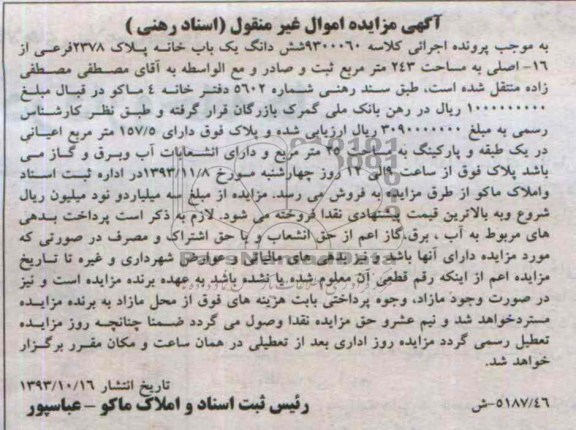 آگهی مزایده اموال غیر منقول (اسناد رهنی )
به موجب پرونده اجرائی کلاسه ۹۳۰۰۰۶۰شش دانگ یک باب خانه پلاک ۲۳۷۸فرعی از
۱۶- اصلی به مساحت ۲۴۳ متر مربع ثبت و صادر و مع الواسطه به آقای مصطفی مصطفی
زاده منتقل شده است، طبق سند رهنی شماره ۵۶۰۲ دفتر خانه ۴ ماکو در قبال مبلغ
۱۰۰۰۰۰۰۰۰۰ ریال در رهن بانک ملی گمرک بازرگان قرار گرفته و طبق نظر کارشناس
رسمی به مبلغ ۳۰۹۰۰۰۰۰۰۰ ریال ارزیابی شده و پلاک فوق دارای ۱۵۷/۵ متر مربع اعیانی
در یک طبقه و پارکینگ به مساحت ۲۵ متر مربع و دارای انشعابات آب وبرق و گاز می
باشد پلاک فوق از ساعت ۹الی ۱۲ روز چهارشنبه مورخ ۱۳۹۳/۱۱/۸در اداره ثبت اسناد
واملاک ماکو از طرق مزایده به فروش می رسد. مزایده از مبلغ سه میلیاردو نود میلیون ریال
شروع وبه بالاترین قیمت پیشنهادی نقدا فروخته می شود. لازم به ذکر است پرداخت بدهی
های مربوط به آب ، برق،گاز اعم از حق انشعاب و یا حق اشتراک و مصرف در صورتی که
مورد مزایده دارای آنها باشد و نیز بدهی های مالیاتی و عوارض شهرداری و غیره تا تاریخ
مزایده اعم از اینکه رقم قطعی آن معلوم شده یا نشده باشد به عهده برنده مزایده است و نیز
در صورت وجود مازاد، وجوه پرداختی بابت هزینه های فوق از محل مازاد به برنده مزایده
مستردخواهد شد و نیم عشرو حق مزایده نقدا وصول می گردد ضمنا چنانچه روز مزایده
تعطیل رسمی گردد مزایده روز اداری بعد از تعطیلی در همان ساعت و مکان مقرر برگزار
خواهد شد.
تاریخ انتشار ۱۳۹۳/۱۰/۱۶
رئیس ثبت اسناد و املاک ماکو - عباسپور
۵۱۸۷/۴۶-ش